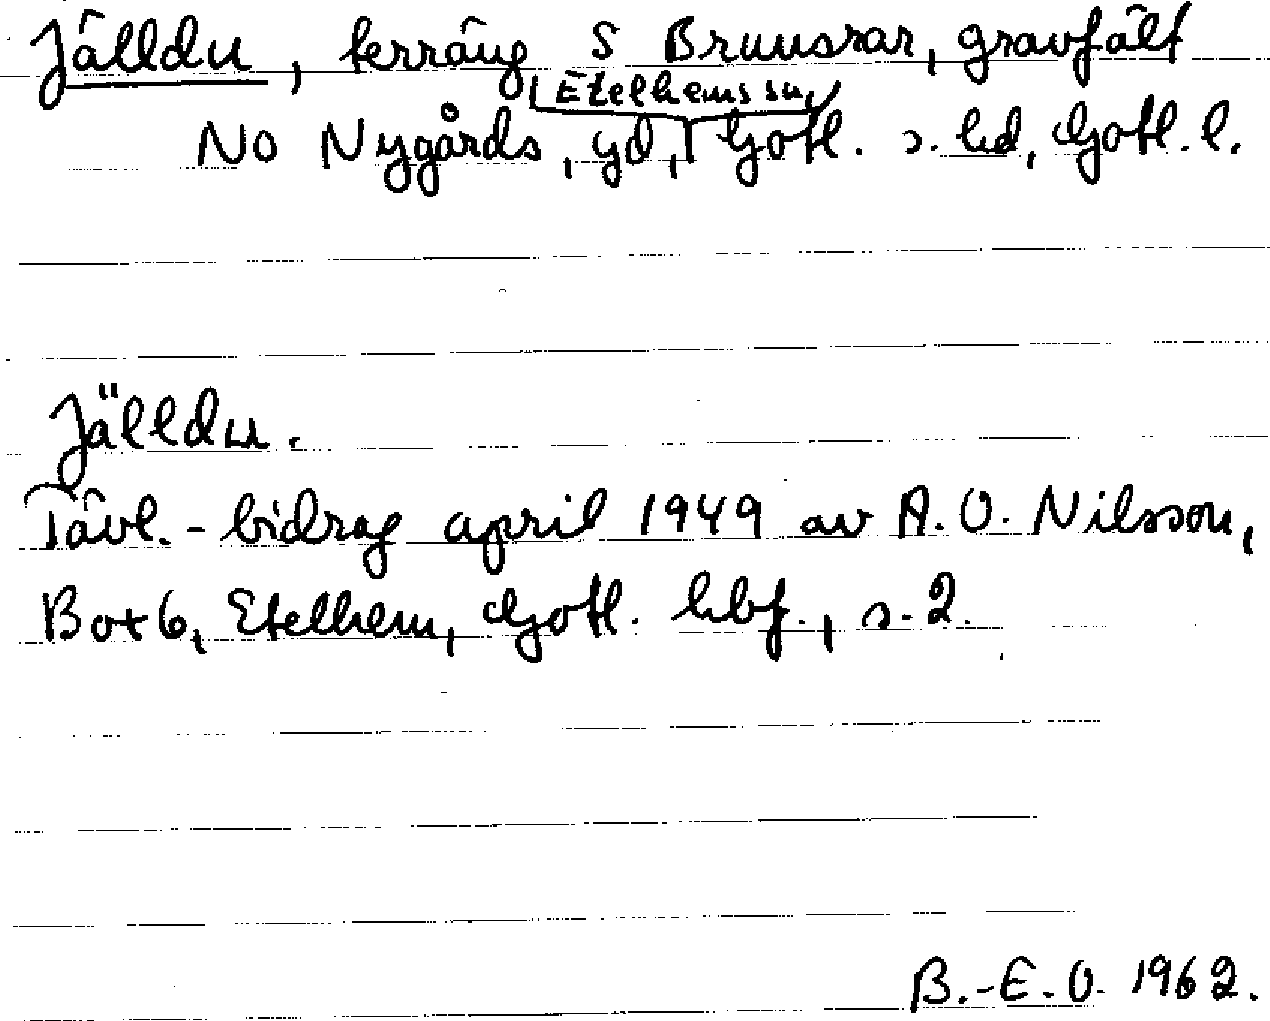 Jälldu, terräng S Brunnsrar, gravfält
Etelhems sn,
NO Nygårds, gd, Gotl. s. hd, Gotl. l.
Jälldu.
Tävl.-bidrag april 1949 av A. O. Nilsson,
Box 6, Etelhem, Gotl. hbf., s. 2.
B.-E. O. 1962.